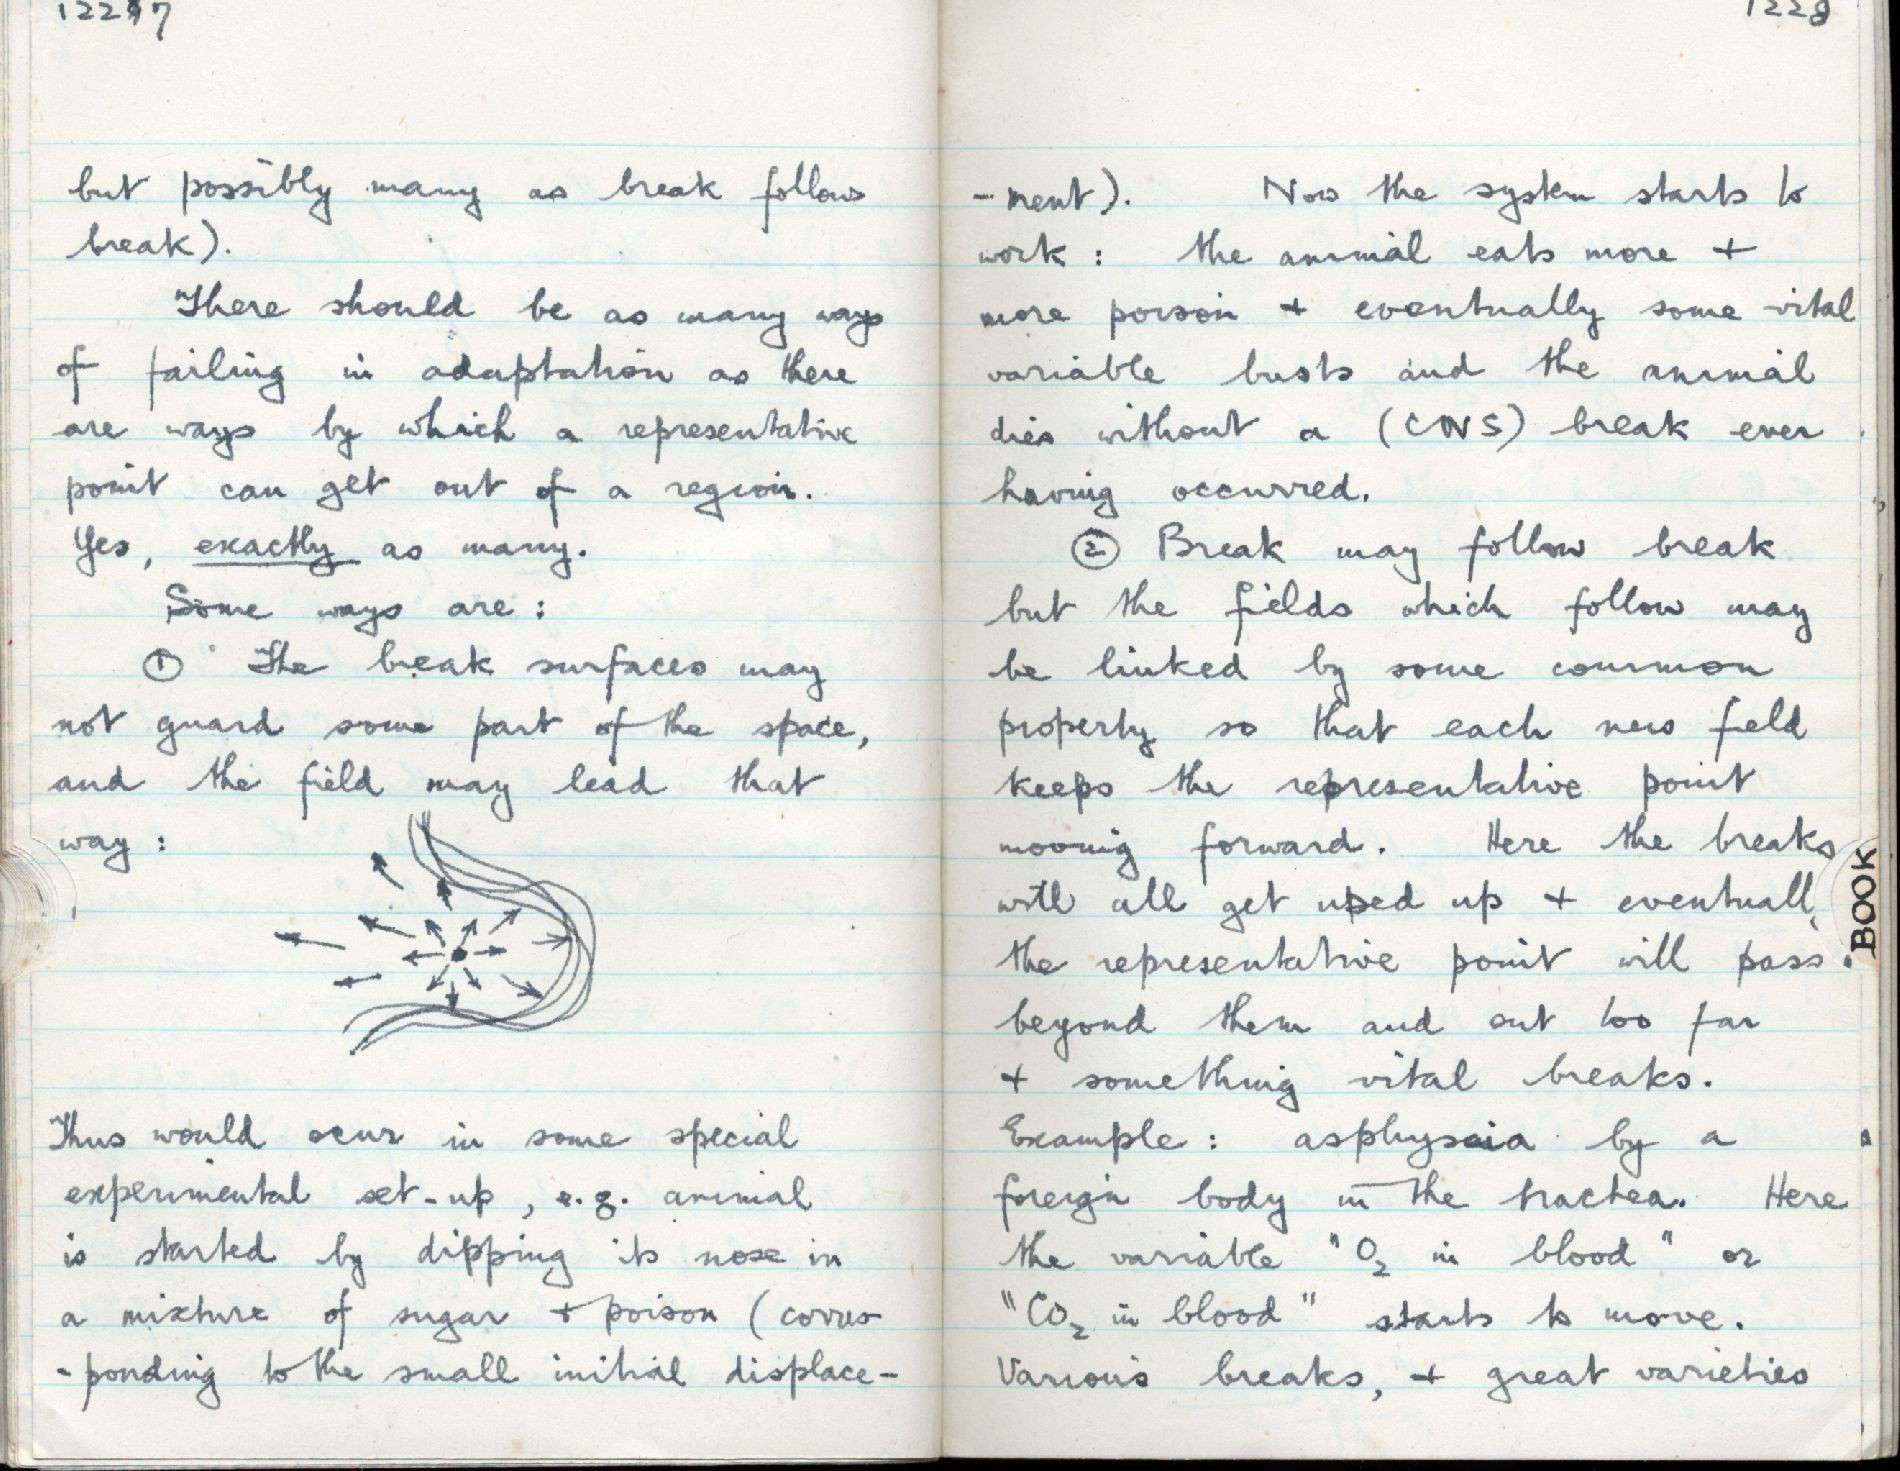 1227
but possibly many as break follows
break).
There should be as many ways
of failing in adaptation as there
are ways by which a representative
point can get out of a region.
Yes, exactly as many.
Some ways are:
① The break surfaces may
not guard some part of the space,
and the field may lead that
way:
Thus would ocur in some special
experimental set-up, e.g. animal
is started by dipping its nose in
a mixture of sugar + poison (corres-
-ponding to the small initial displace-
1228
-ment). Now the system starts to
work: the animal eats more +
more poison + eventually some vital
variable busts and the animal
dies without a (CNS) break ever
having occurred.
② Break may follow break
but the fields which follow may
be linked by some common
property so that each new field
keeps the representative point
moving forward. Here the breaks
will all get used up + eventuall
the representative point will pass
beyond them and out too far
+ something vital breaks.
Example: asphyxia by a
foreign body in the trachea. Here
the variable "O₂ in blood" or
"CO₂ in blood" starts to move.
Various breaks, + great varieties
BOOK